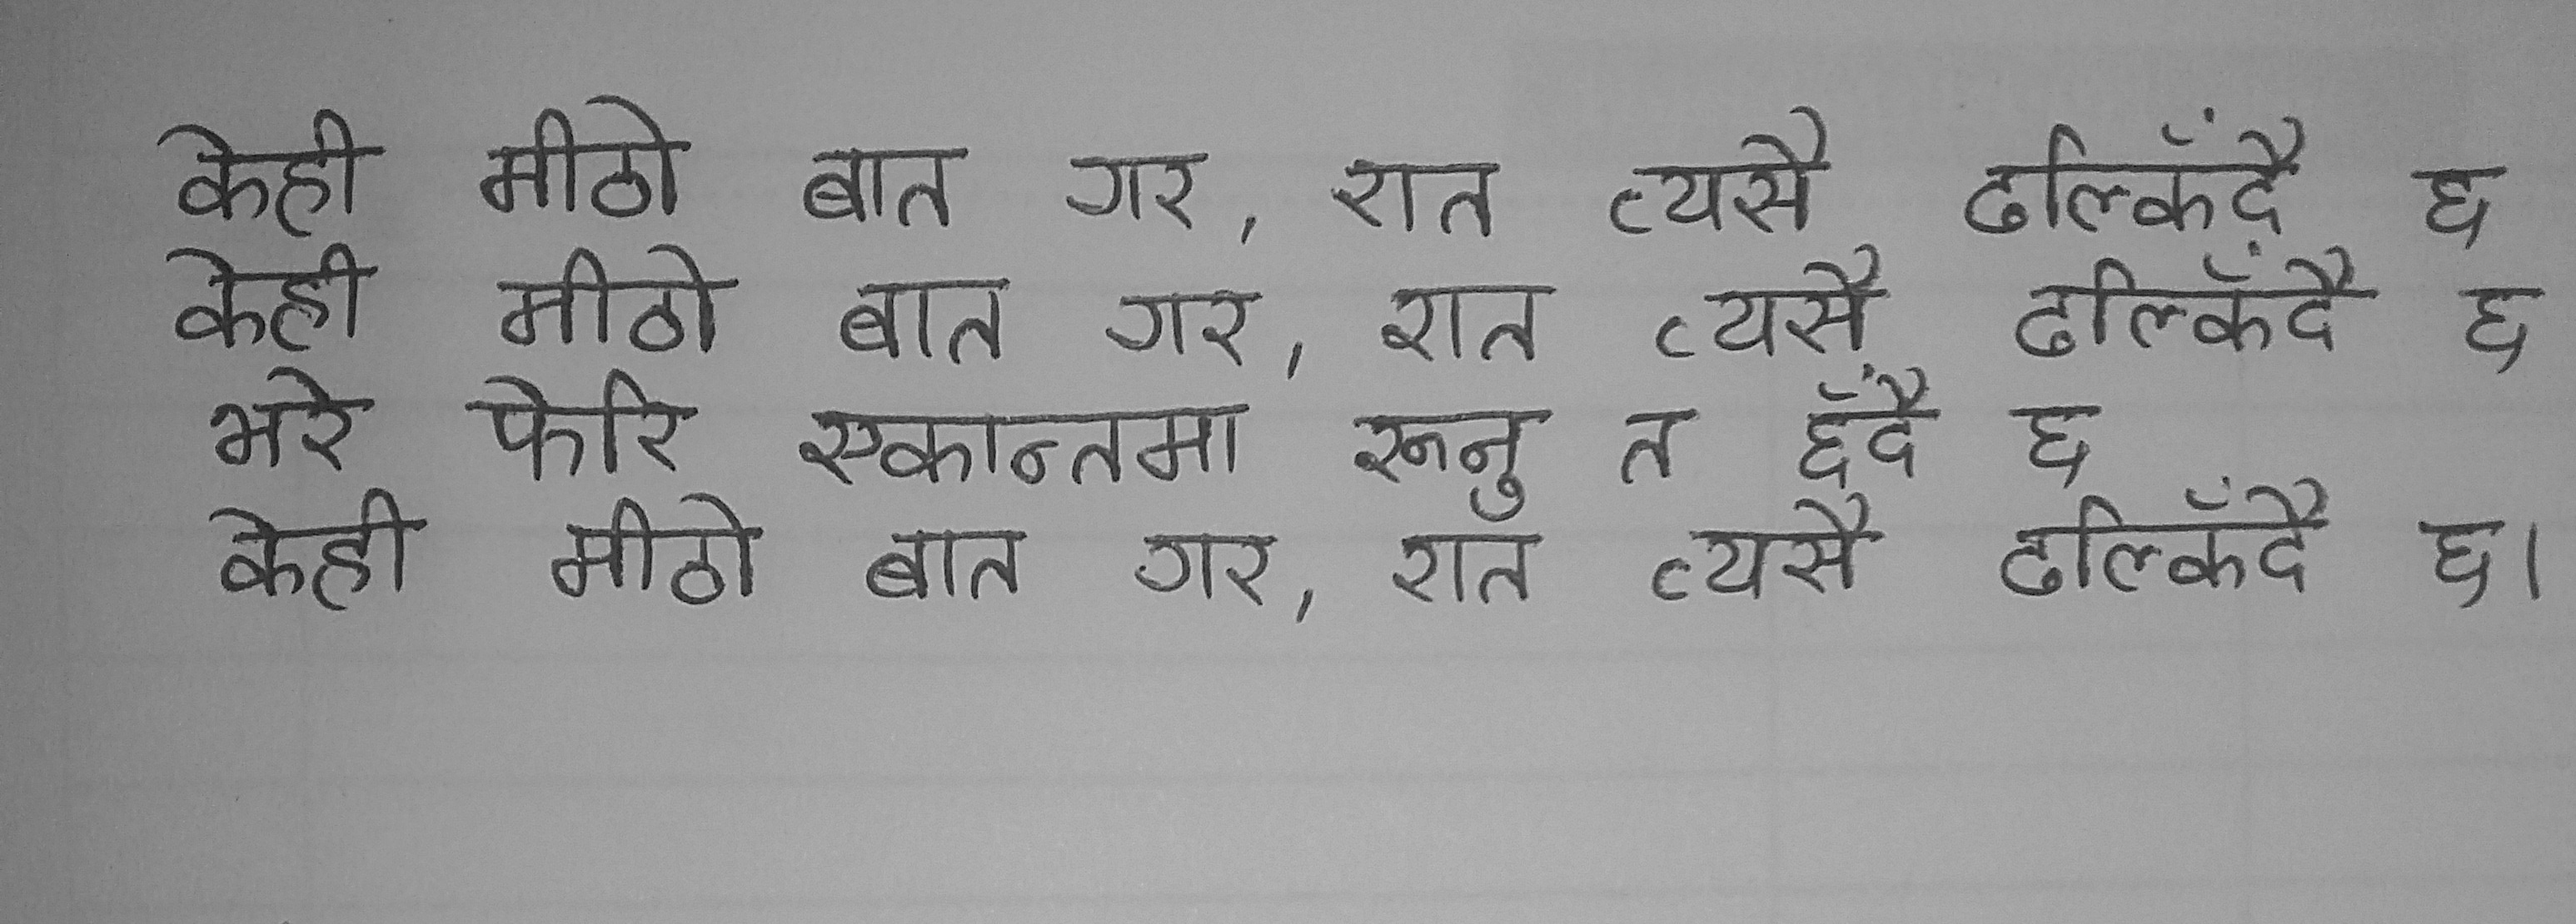 केही मीठो बात गर, रात त्यसै ढल्किँदै छ
केही मीठो बात गर, रात त्यसै ढल्किँदै छ
भरे फेरि एकान्तमा रून्नु त छँदै छ
केही मीठो बात गर, रात त्यसै ढल्किँदै छ।